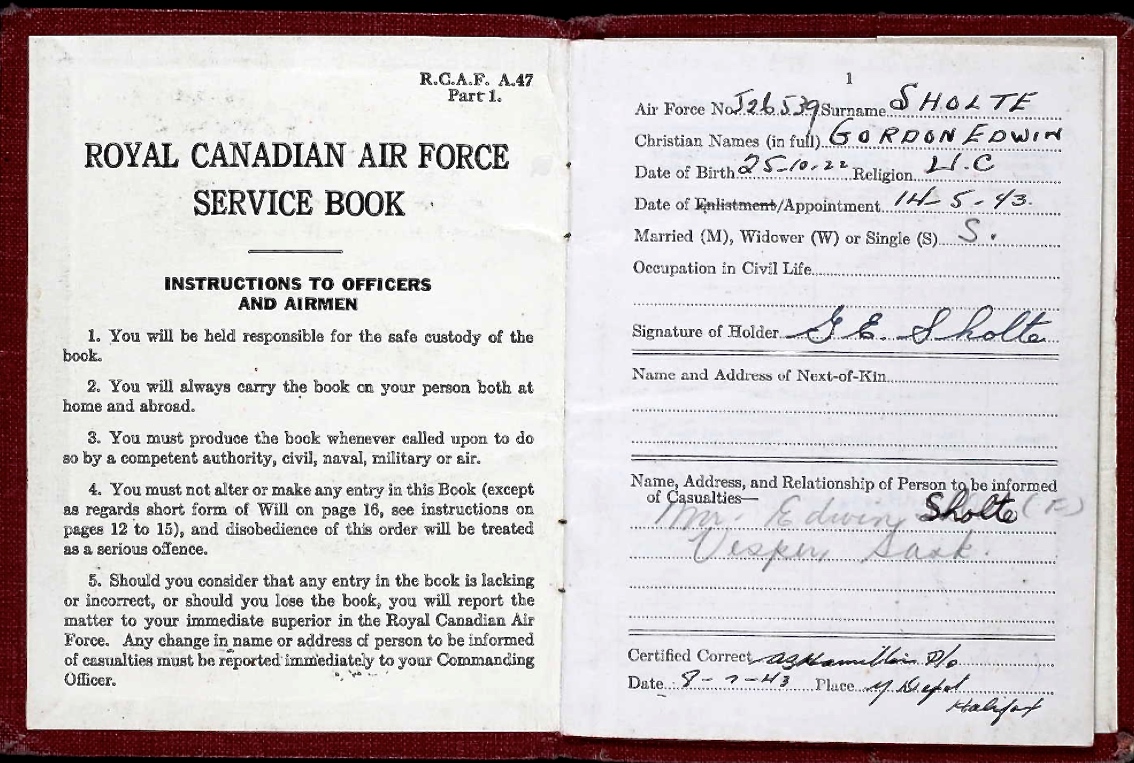 R.C.A.F. A.47
Part 1.
ROYAL CANADIAN AIR FORCE
SERVICE BOOK
INSTRUCTIONS TO OFFICERS
AND AIRMEN
1. You will be held responsible for the safe custody of the
book.
2. You will always carry the book on your person both at
home and abroad.
3. You must produce the book whenever called upon to do
so by a competent authority, civil, naval, military or air.
4. You must not alter or make any entry in this Book (except
as regards short form of Will on page 16, see instructions on
pages 12 to 15), and disobedience of this order will be treated
as a serious offence.
5. Should you consider that any entry in the book is lacking
or incorrect, or should you lose the book, you will report the
matter to your immediate superior in the Royal Canadian Air
Force. Any change in name or address of person to be informed
of casualties must be reported immediately to your Commanding
Officer.
1
Air Force No. J26539 Surname SHOLTE
Christian Names (in full) GORDON EDWIN
Date of Birth 25-10-22 Religion U.C
Date of Enlistment/Appointment 14-5-43.
Married (M), Widower (W) or Single (S) S.
Occupation in Civil Life
Signature of Holder G E. Sholte
Name and Address of Next-of-Kin
Name, Address, and Relationship of Person to be informed
of Casualties—
Mr Edwin Sholte (F)
Vesper, Sask.
Certified Correct P/o
Date 8-7-43 Place Y Depot
Halifax